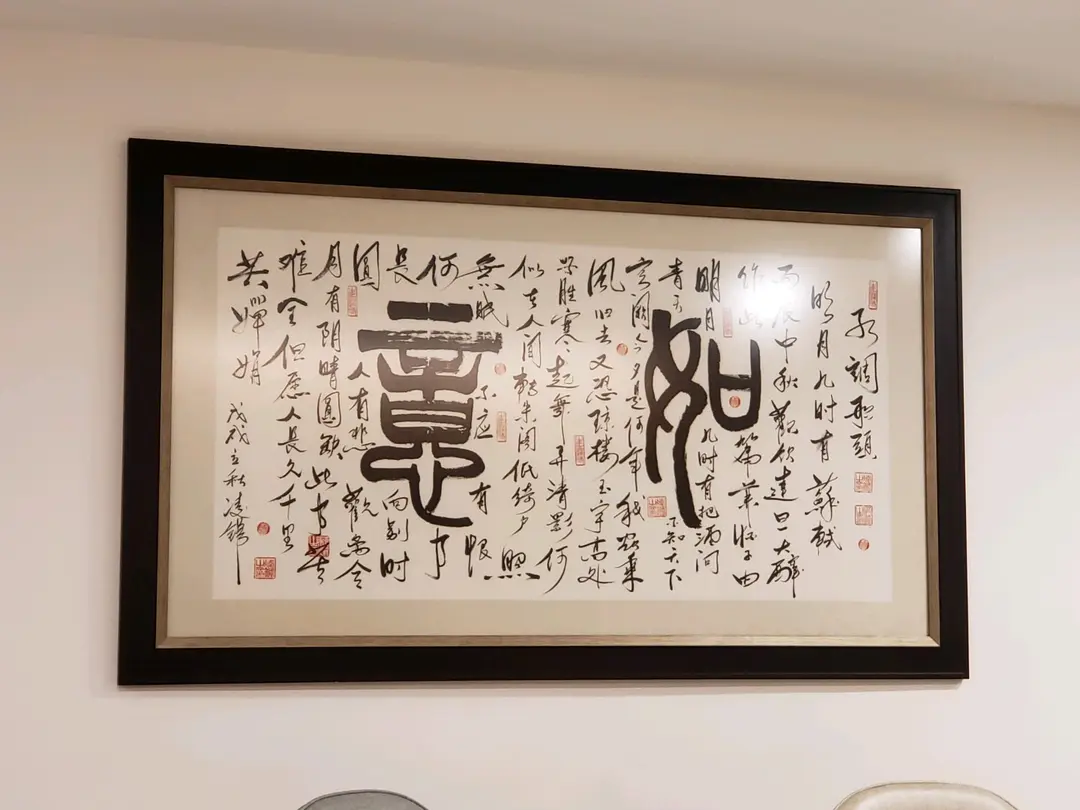 水調歌頭
明月几时有 蘇軾
丙辰中秋歡飲達旦大醉
作此篇兼怀子由
如意
明月几时有把酒问
青天不知天下
宫阙今夕是何年我欲乘
風归去又恐琼楼玉宇高处
不胜寒起舞弄清影何
似在人间轉朱阁低绮户照
無眠不应有恨
何事
長向别时
圓人有悲歡离合
月有阴晴圓缺此事古
难全但愿人長久千里
共嬋娟
戊戌立秋